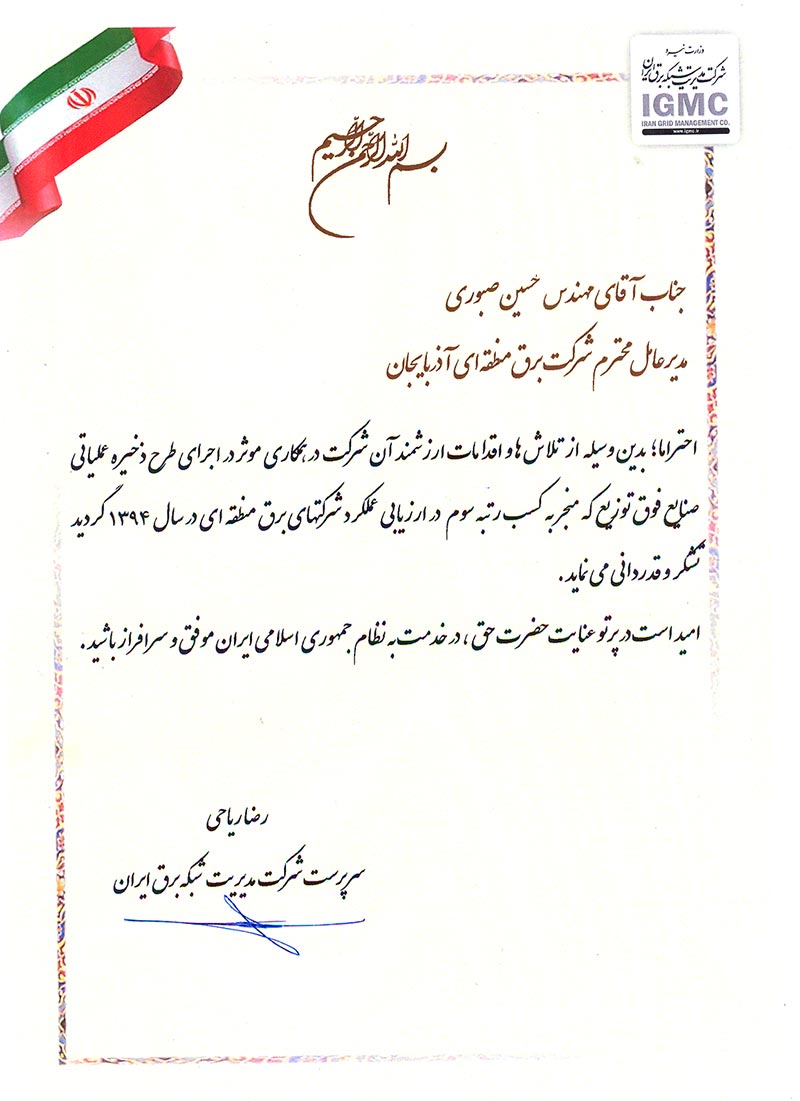 وزارت نیرو
شرکت مدیریت شبکه برق ایران
IGMC
IRAN GRID MANAGEMENT CO.
www.igmc.ir
بسم الله الرحمن الرحیم
جناب آقای مهندس حسین صبوری
مدیرعامل محترم شرکت برق منطقه ای آذربایجان
احتراما؛ بدین وسیله از تلاش ها و اقدامات ارزشمند آن شرکت در همکاری موثر در اجرای طرح ذخیره عملیاتی
صنایع فوق توزیع که منجر به کسب رتبه سوم در ارزیابی عملکرد شرکتهای برق منطقه ای در سال ۱۳۹۴ گردید
تشکر و قدردانی می نماید.
امید است در پرتو عنایت حضرت حق، در خدمت به نظام جمهوری اسلامی ایران موفق و سرافراز باشید.
رضا ریاحی
سرپرست شرکت مدیریت شبکه برق ایران